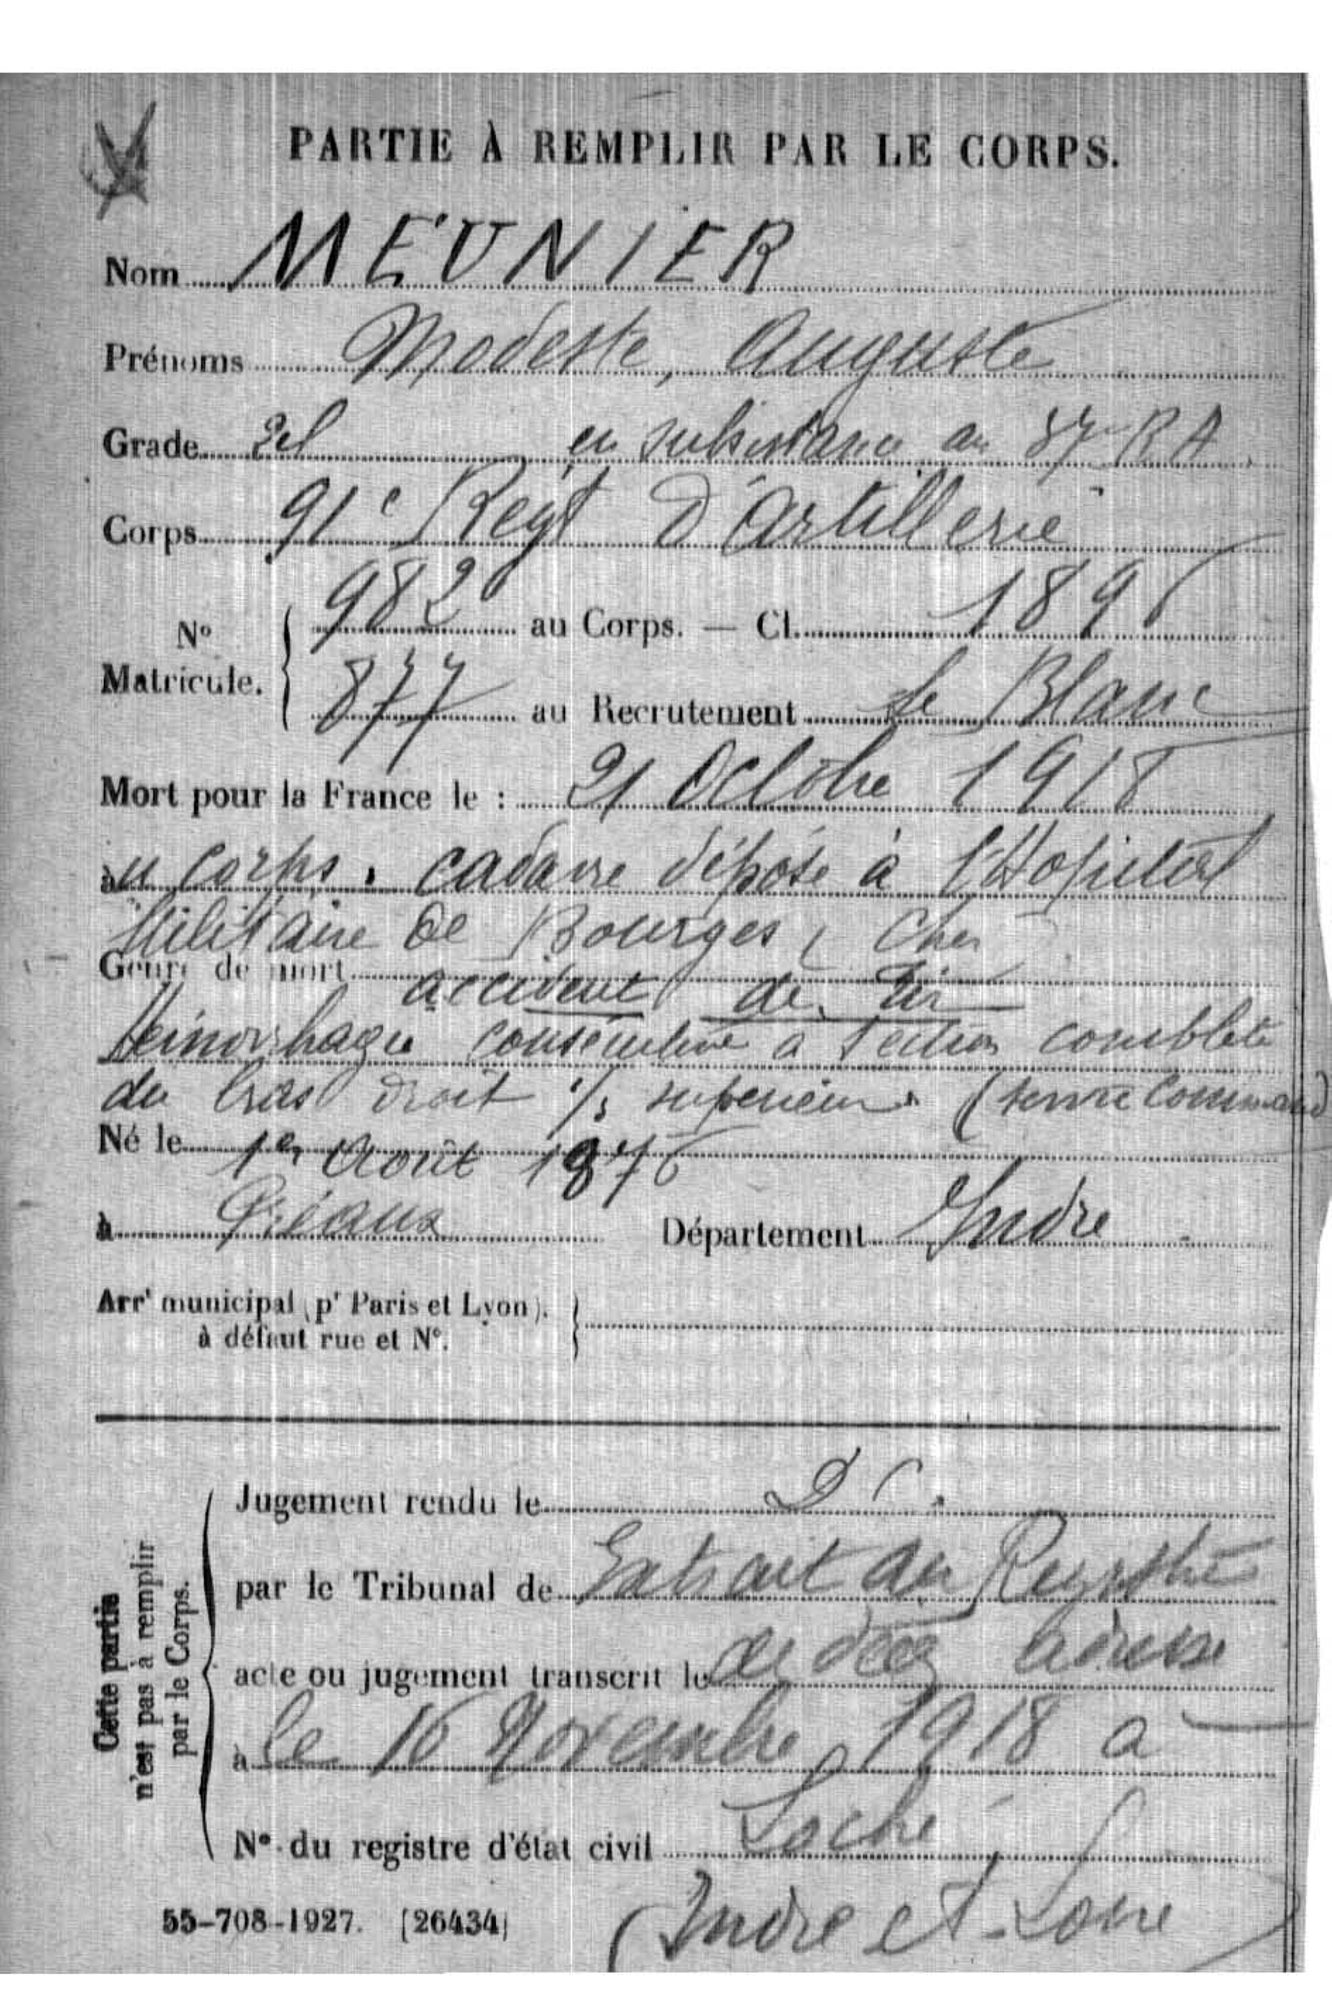 PARTIE À REMPLIR PAR LE CORPS.
Nom MEUNIER
Prénoms Modeste, Auguste
Grade 2cl en subsistance au 37 RA
Corps 91e Regt d'Artillerie
No Matricule. 982 au Corps. — Cl. 1896
877 au Recrutement Le Blanc
Mort pour la France le : 21 Octobre 1918
au corps. cadavre déposé à l'Hopital
Militaire de Bourges, Cher
Genre de mort accident de tir
Hémorrhagie consécutive à section complète
du bras droit 1/3 superieur (service command
Né le 1er Août 1876
à Département Indre
Arrt municipal (pr Paris et Lyon),
à défaut rue et N°.
Cette partie
n'est pas à remplir
par le Corps.
Jugement rendu le D C.
par le Tribunal de Extrait du Registre
acte ou jugement transcrit le de décès adressé
à le 16 Novembre 1918 a
N° du registre d'état civil Loché
(Indre et Loire
55-708-1927. [26434]